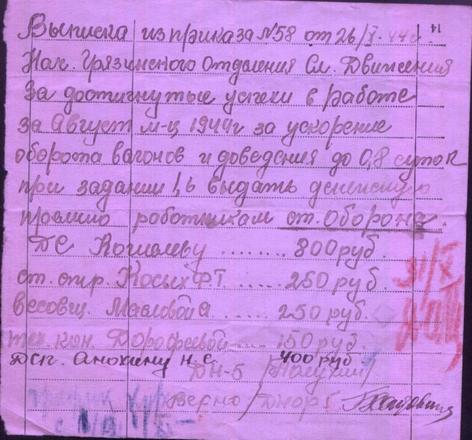 14
Выписка из приказа №58 от 26/X.44г
Нач. Грязинского Отделения Сл. Движения
За достигнутые успехи в работе
за Август м-ц 1944г за ускорение
оборота вагонов и доведения до 0,8 суток
при задании 1,6 выдать денежную
премию работникам ст. Оборона.
ДС ........ 800 руб.
ст. стр. Косых Ф.Т. ..... 250 руб.
весовщ. ...... 250 руб.
тех. кон. Дорофеевой ..... 150 руб.
дсп. Анохину Н. С. 400 руб
ДН-5
верно